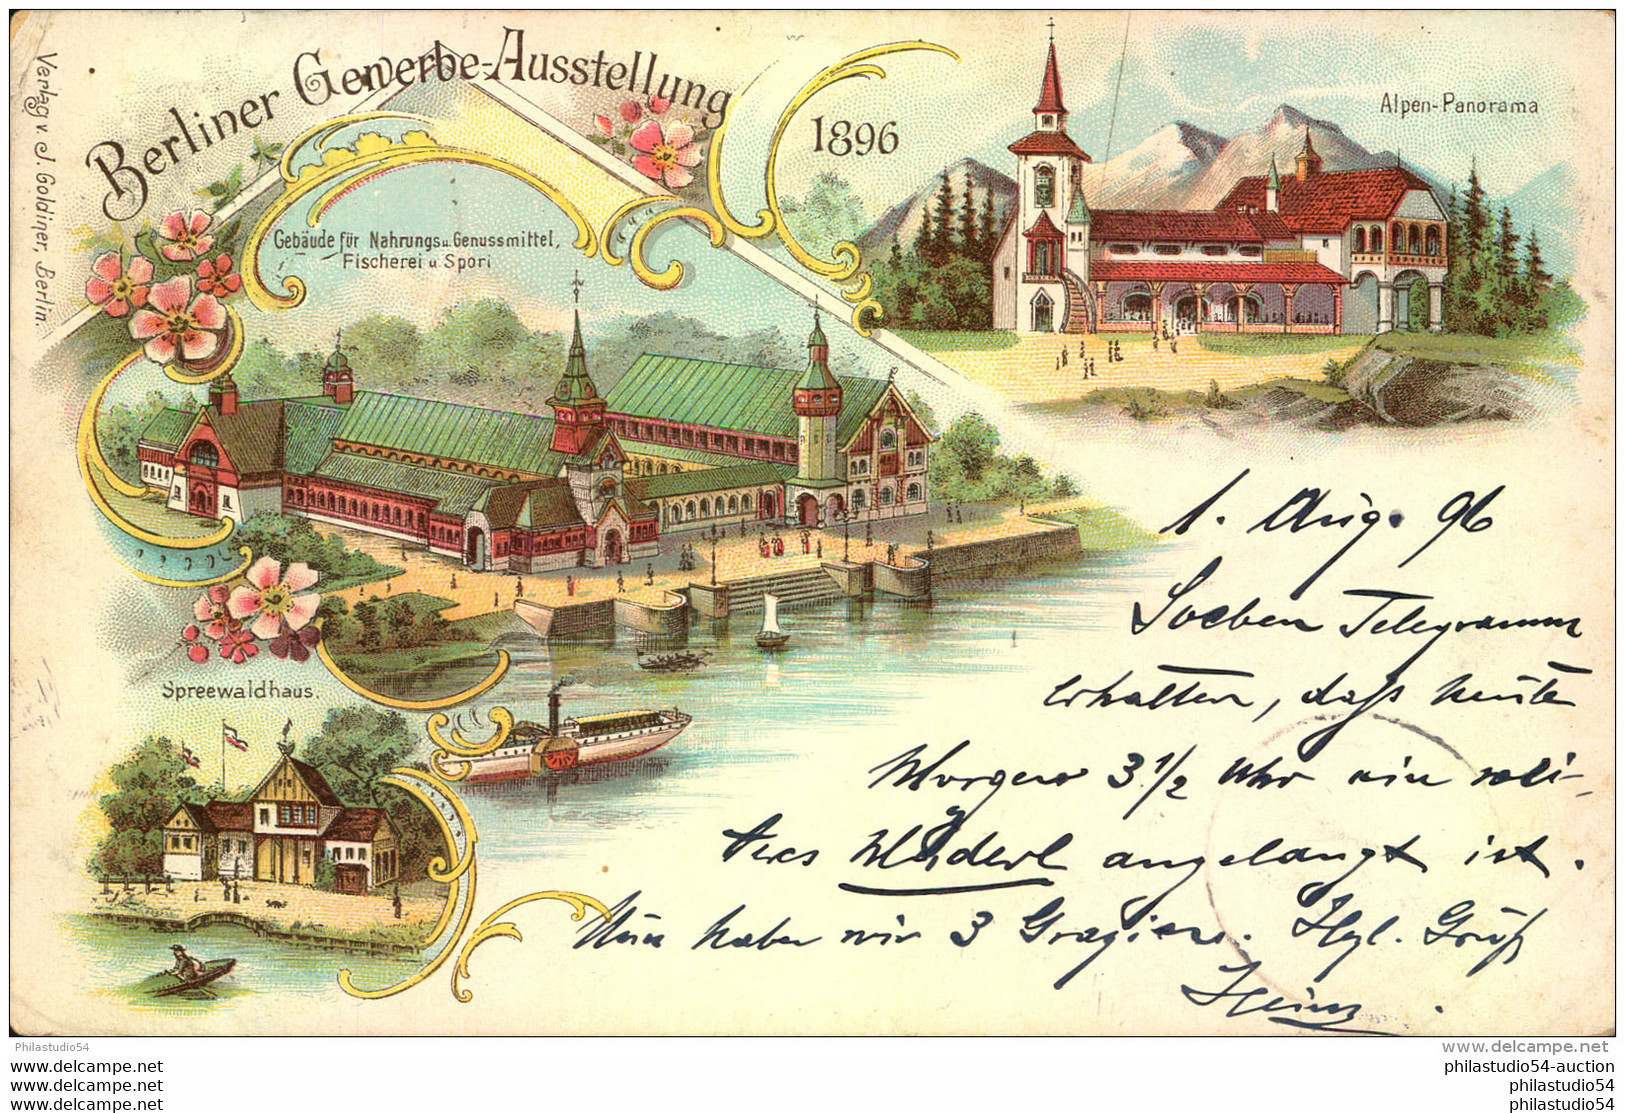 Berliner Gewerbe-Ausstellung
1896
Verlag v. J. Goldiner, Berlin.
Alpen-Panorama
Gebäude für Nahrungs u. Genussmittel,
Fischerei u Sport
Spreewaldhaus.
1. Aug. 96
Soeben Telegramm
erhalten, daß heute
Morgen 3 1/2 Uhr ein wei-
teres Mäderl angelangt ist.
Nun haben wir 3 Grazien. Hzl. Gruß
Heinz.
Philastudio54
www.delcampe.net
www.delcampe.net
www.delcampe.net
www.delcampe.net
philastudio54-auction
philastudio54
philastudio54